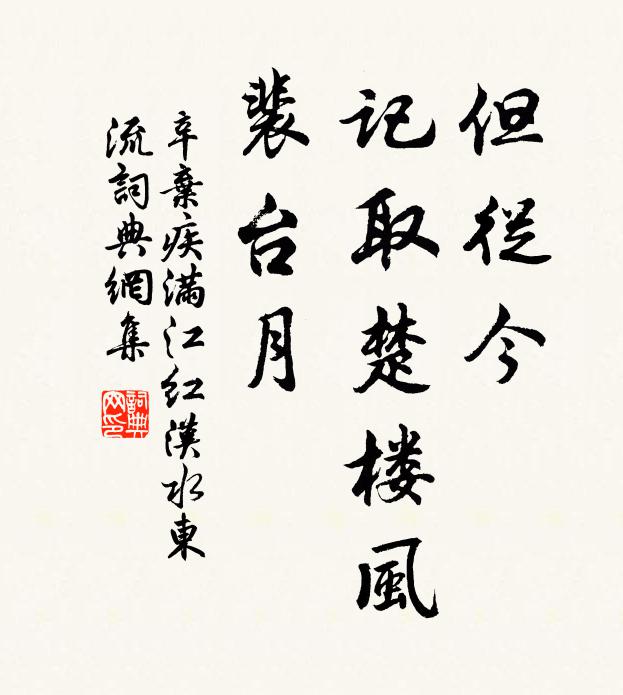 但從今
記取楚楼風
裴台月
辛棄疾滿江紅漢水東
流詞典網集
詞典
网印